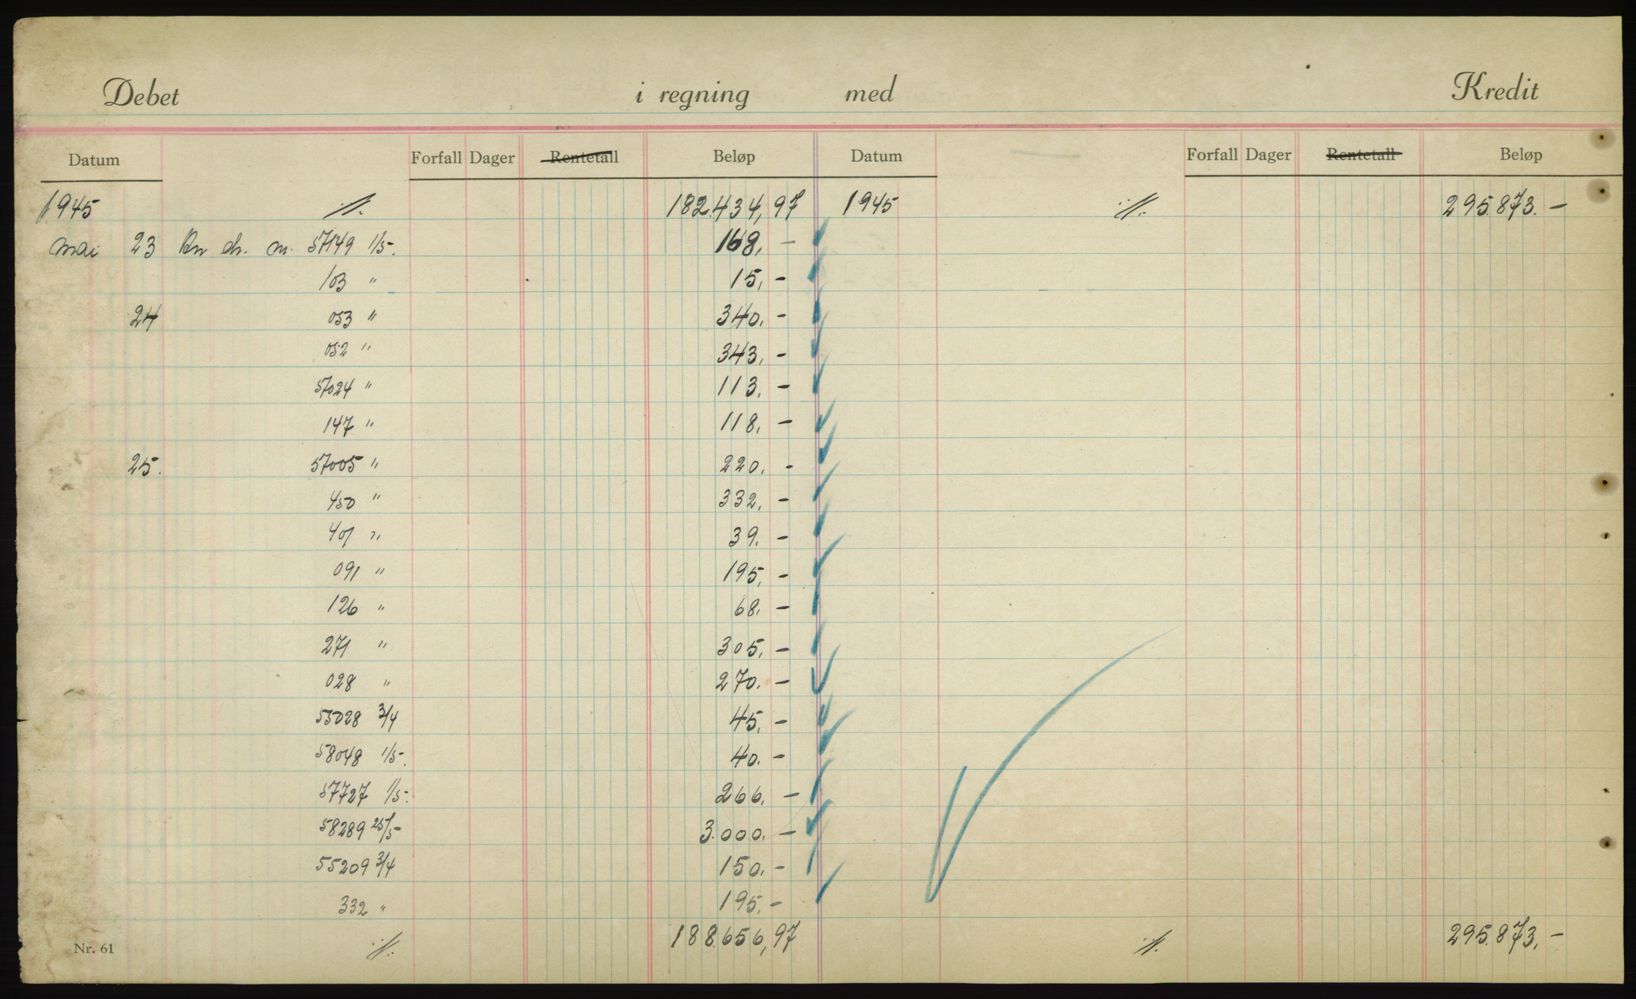 Debet i regning med Kredit
Datum Forfall Dager Rentetall Beløp Datum Forfall Dager Rentetall Beløp
1945 ·/. 182.434,97 1945 ·/. 295.873.-
mai 23 57149 1/5. 168,-
103 " 15,-
24 053 " 340.-
052 " 343,-
57024 " 113,-
147 " 118,-
25. 57005 " 220.-
450 " 332,-
401 " 39.-
091 " 195,-
126 " 68.-
271 " 305,-
028 " 270.-
55028 3/4 45,-
58048 1/5. 40.-
57727 1/5. 266.-
58289 25/5 3.000.-
55209 3/4 150.-
332 " 195.-
Nr. 61 ·/. 188.656,97 ·/. 295.873,-